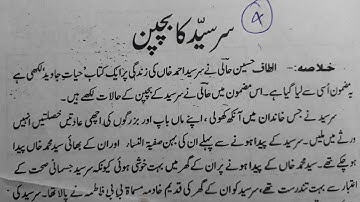 سرسیّد کا بچپن
4
خلاصہ:- الطاف حسین حالی نے سرسید احمد خاں کی زندگی پر ایک کتاب ’حیاتِ جاوید‘ لکھی ہے
یہ مضمون اُسی سے لیا گیا ہے۔ اس مضمون میں حالی نے سرسید کے بچپن کے حالات لکھے ہیں۔
سرسید نے جس خاندان میں آنکھ کھولی، اپنے ماں باپ اور بزرگوں کی اچھی عادتیں خصلتیں انہیں
ورثے میں ملیں۔ سرسید کے پیدا ہونے سے پہلے ان کی بہن صفیۃ النساء اور ان کے بھائی سید محمد خاں پیدا
ہو چکے تھے۔ سید محمد خاں کے پیدا ہونے پر ان کے گھر میں بہت خوشی ہوئی کیونکہ سرسید جسمانی صحت کے
اعتبار سے بہت تندرست تھے، سرسید کو ان کے گھر کی قدیم خادمہ مسماۃ بی بی فاطمہ نے پالا تھا۔ سرسید کی